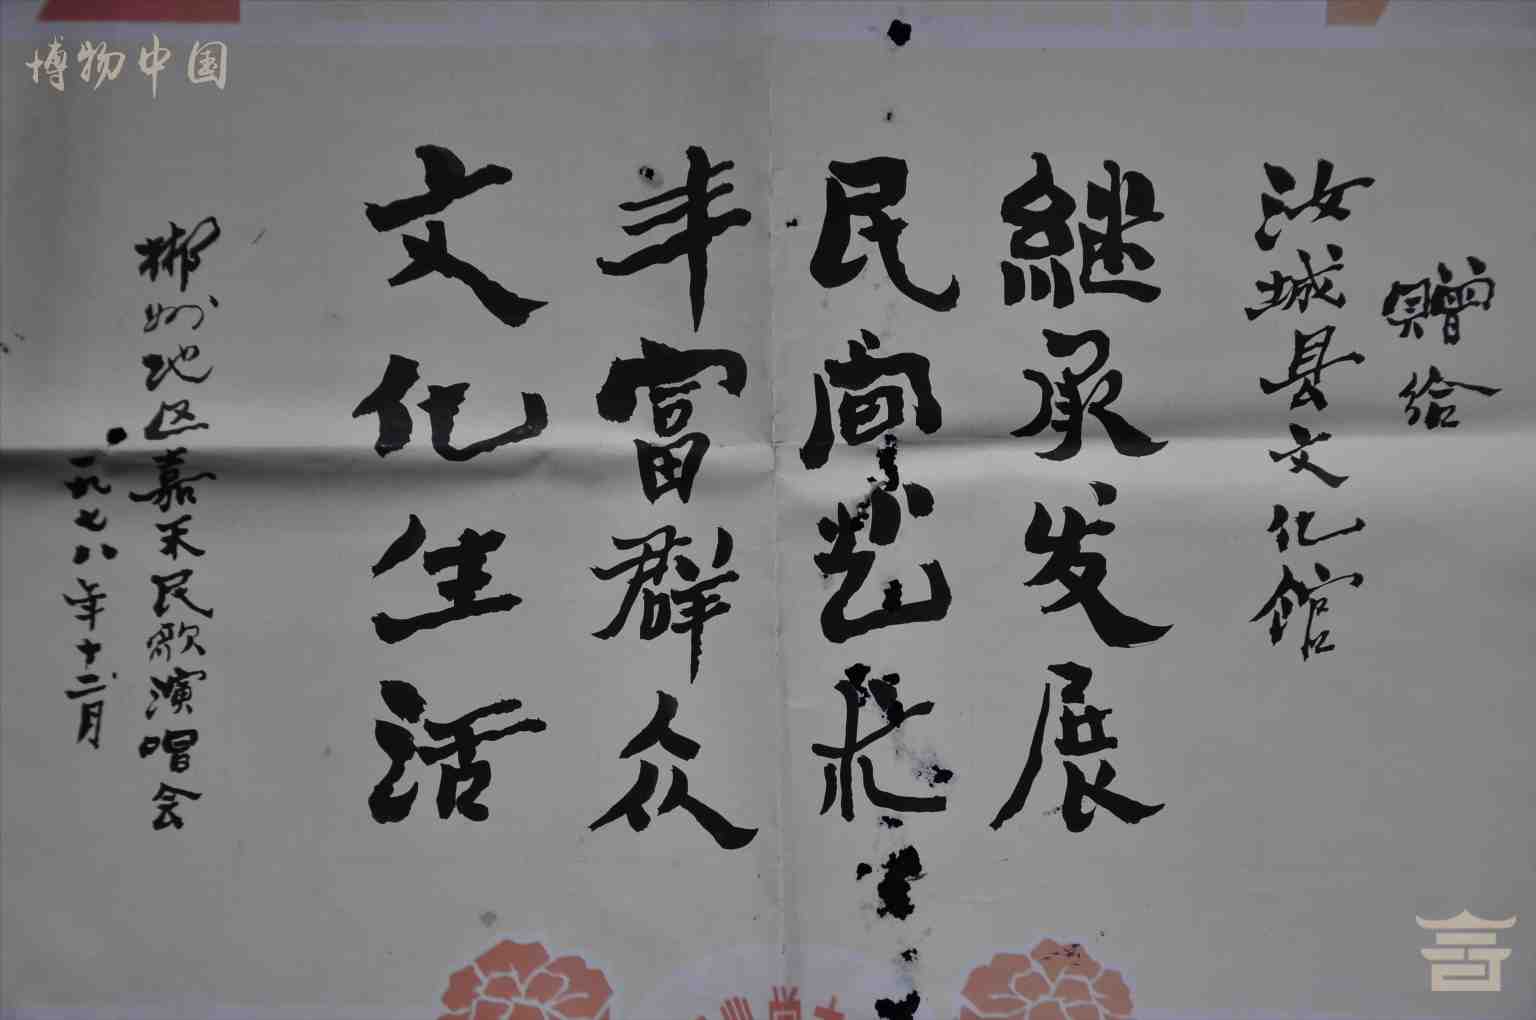 博物中国
赠给
汝城县文化馆
继承发展
民间艺术
丰富群众
文化生活
郴州地区嘉禾民歌演唱会
一九七八年十二月